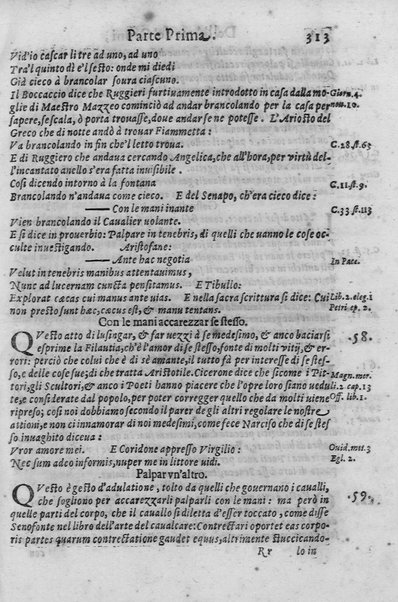 Parte Prima. 313
Vid'io cascar li tre ad uno, ad uno
Tra'l quinto dì e'l sesto: onde mi diedi
Già cieco à brancolar soura ciascuno.
Il Boccaccio dice che Ruggieri furtiuamente introdotto in casa dalla mo- Giorn. 4.
glie di Maestro Mazzeo cominciò ad andar brancolando per la casa per nou. 10.
sapere, se scala, ò porta trouasse, doue andarsene potesse. L'Ariosto del
Greco che di notte andò à trouar Fiammetta:
Va brancolando in fin che'l letto troua. C. 28. st. 63
E di Ruggiero che andaua cercando Angelica, che all'hora, per virtù del-
l'incantato anello s'era fatta inuisibile.
Così dicendo intorno à la fontana C. 11. st. 9.
Brancolando n'andaua come cieco. E del Senapo, ch'era cieco dice:
—— Con le mani inante C. 33 st. 113
Vien brancolando il Caualier volante.
E si dice in prouerbio: Palpare in tenebris, di quelli che uanno le cose oc-
culte inuestigando. Aristofane:
—— Ante hac negotia In Pace.
Velut in tenebris manibus attentauimus,
Nunc ad lucernam cuncta pensitamus. E Tibullo:
Explorat cæcas cui manus ante uias. E nella sacra scrittura si dice: Cui Lib. 2. eleg. 1
non prestò sunt hæc, cæcus est, & manu tentans. Petri ep. 2.
Con le mani accarezzar se stesso.
QVesto atto di lusingar, & far uezzi à se medesimo, & anco baciarsi . 58.
esprime la Filautia, ch'è l'amor di se stesso, fonte di molti vitij, & er-
rori: perciò che colui che è di sè amante, il tutto fà per interesse di se stes-
so, e delle cose sue; di che tratta Aristotile. Cicerone dice che sicome i Pit- Magn. mer.
tori, gli Scultori, & anco i Poeti hanno piacere che l'opre loro siano uedu 2. cap. 13
te, e considerate dal popolo, per poter corregger quello che da molti viene Off. lib. 1.
ripreso; così noi dobbiamo secondo il parer de gli altri regolare le nostre
attioni, e non ci innamorar di noi medesimi, come fece Narciso che di se stes
so inuaghito diceua:
Vror amore mei. E Coridone appresso Virgilio: Ouid. met. 3
Nec sum adeo informis, nuper me in littore uidi. Egl. 2.
Palpar vn'altro.
QVesto è gesto d'adulatione, tolto da quelli che gouernano i caualli, . 59.
che sogliono per accarezzarli palparli con le mani: ma però in
quelle parti del corpo, che il cauallo si diletta d'esser toccato, come disse
Senofonte nel libro dell'arte del caualcare: Contrectari oportet eas corpo
ris partes quarum contrectatione gaudet equus, altrimente stuccicando-
Rr lo in